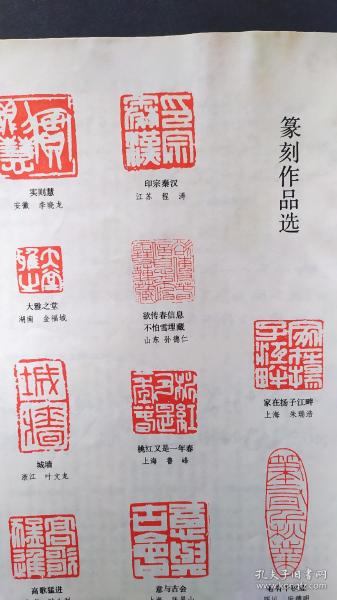 篆刻作品选
实则慧
安徽 李晓龙
印宗秦汉
江苏 程涛
大雅之堂
湖南 金福城
欲传春信息
不怕雪埋藏
山东 孙德仁
家在扬子江畔
上海 朱瑞浩
城墙
浙江 叶文龙
桃红又是一年春
上海 鲁峰
高歌猛进
意与古会
孔夫子旧书网